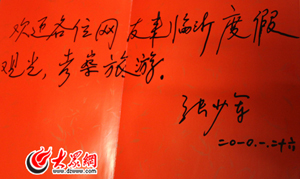 欢迎各位网友来临沂度假
观光，考察旅游。
张少军
二〇一〇.一.二十六
大众网
www.dzwww.com